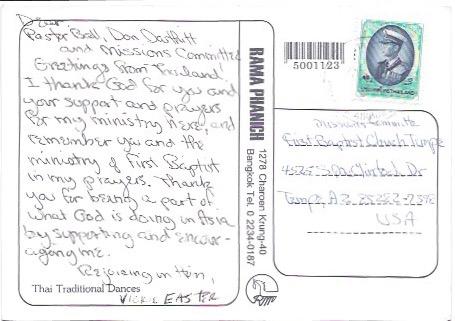 Dear,
Pastor Bell, Don
and Missions Committee
Greetings from Thailand!
I thank God for you and
your support and prayers
for my ministry here, and
remember you and the
ministry of First Baptist
in my prayers. Thank
you for being a part of
what God is doing in Asia
by supporting and encour-
aging me.
Rejoicing in Him,
VICKIE EASTER
Thai Traditional Dances
RAMA PHANICH
1278 Charoen Krung-40
Bangkok Tel. 0 2234-0187
5001123
Missions Committee
First Baptist Church Tempe
Dr
Tempe, AZ
USA